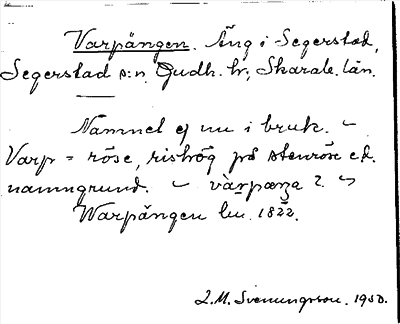 Varpängen. Äng i Segerstad,
Segerstad s:n. Gudh. hr; Skarab. län.
Namnet ej nu i bruk. –
Varp = röse, rishög på stenröse e.d.
namngrund. –
Warpängen hu. 1822.
L.M. Svenungsson. 1930.